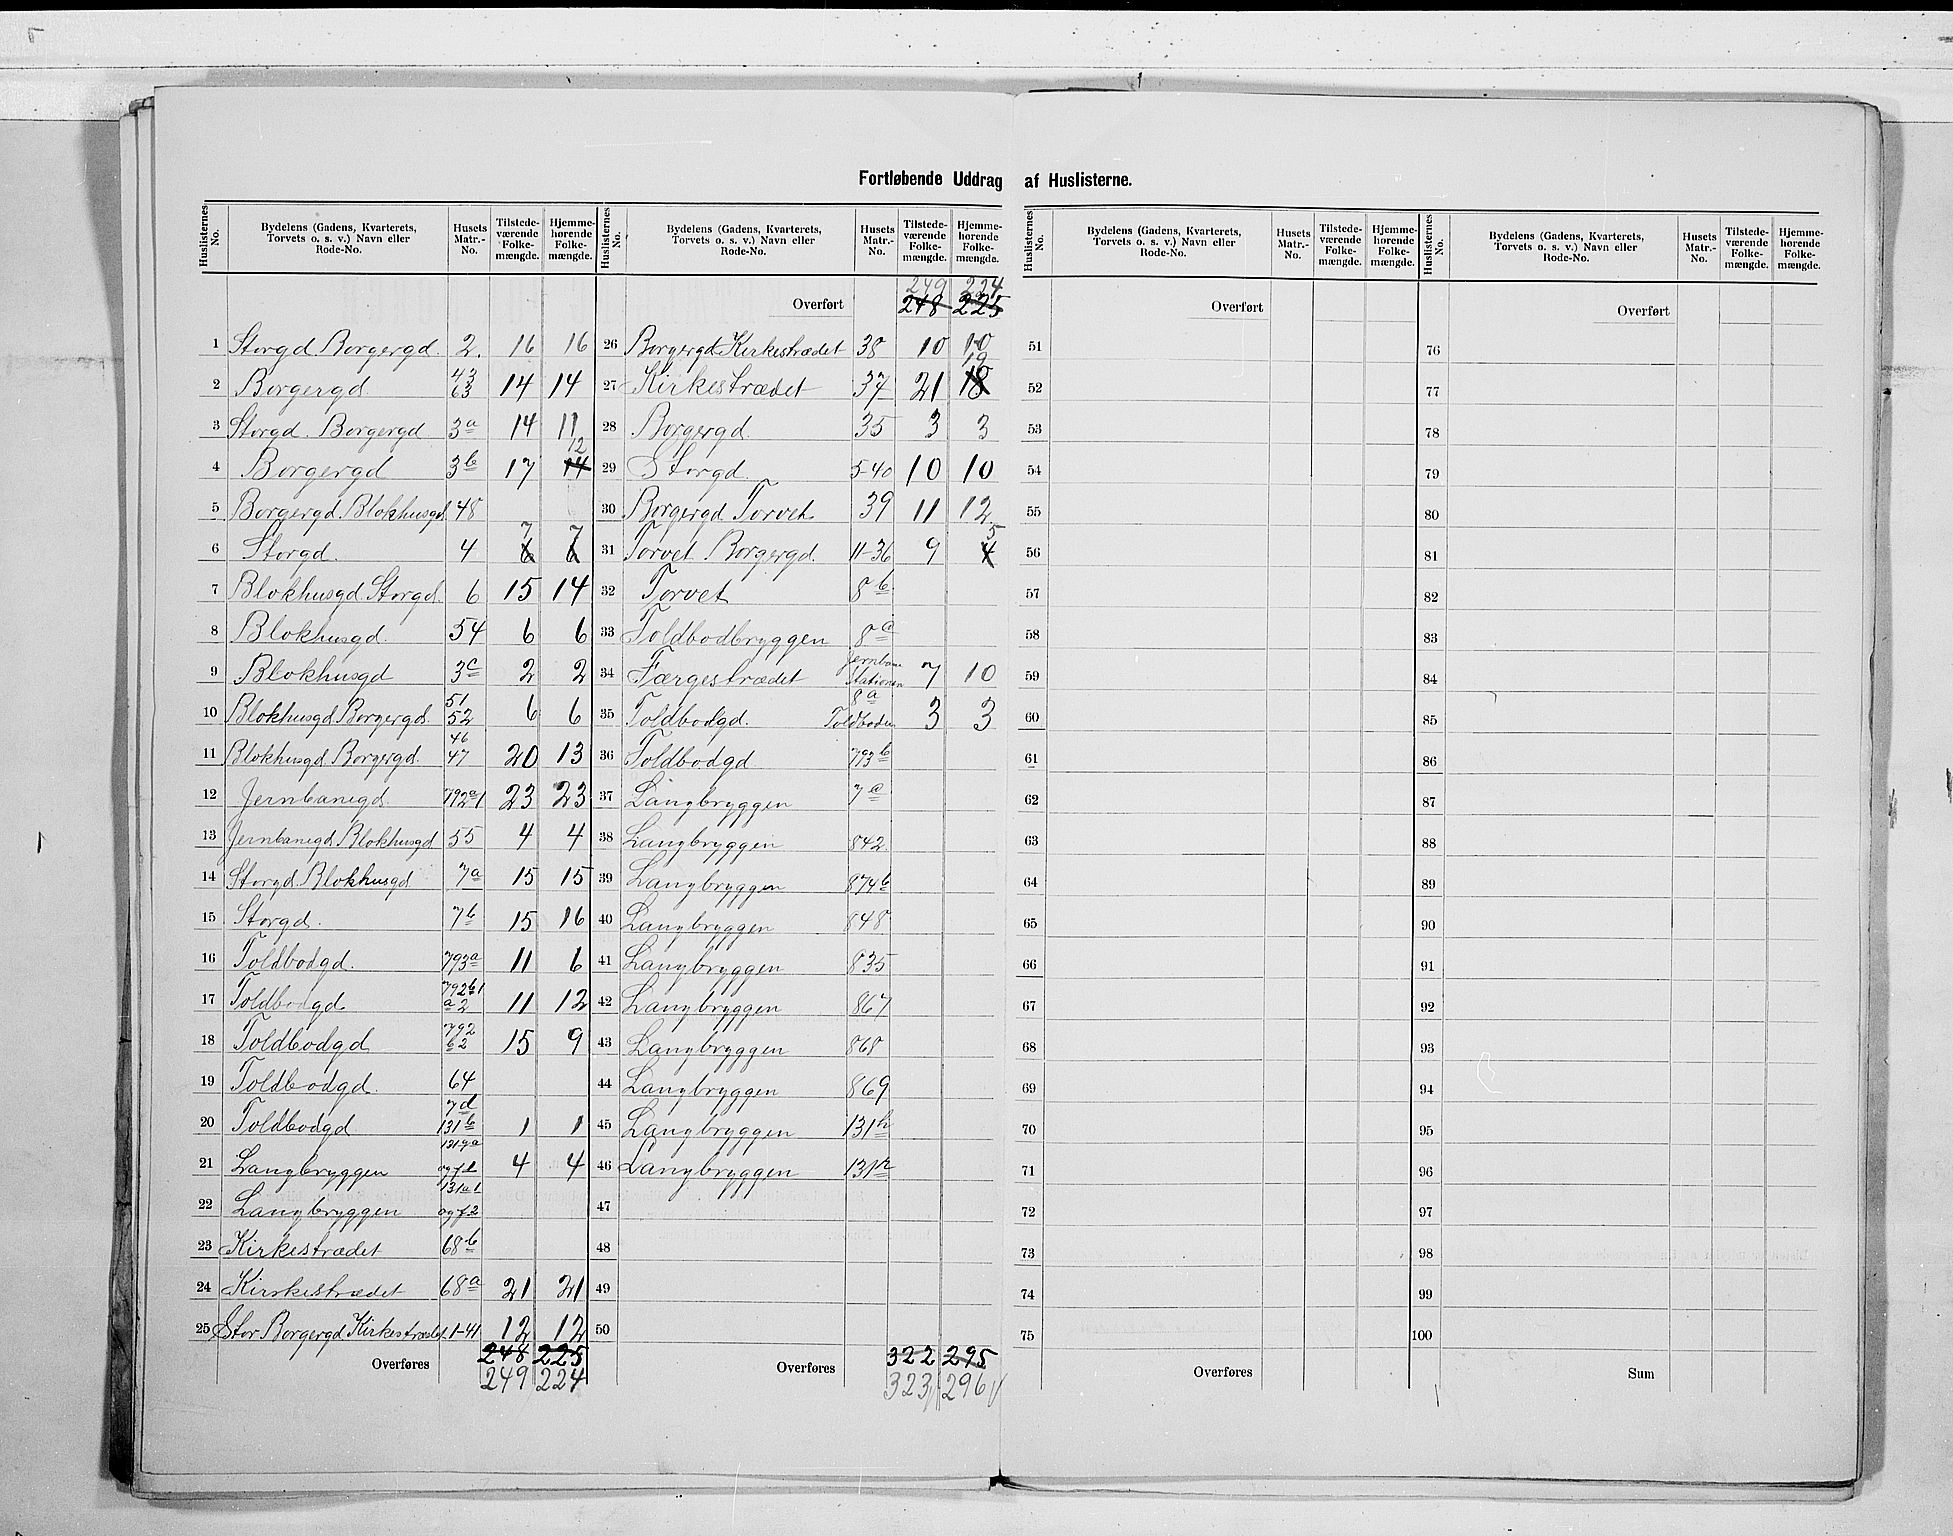 Fortløbende Uddrag af Huslisterne.
Huslisternes No. Bydelens (Gadens, Kvarterets, Torvets o. s. v.) Navn eller Rode-No. Husets Matr.-No. Tilstedeværende Folkemængde. Hjemmehørende Folkemængde.
1 Storgd. Borgergd. 2. 16 16
2 Borgergd. 43 63 14 14
3 Storgd. Borgergd 3a 14 11
4 Borgergd 3b 17 14 12
5 Borgergd. Blokhusgd. 48
6 Storgd. 4 6 7 6 7
7 Blokhusgd. Storgd. 6 15 14
8 Blokhusgd. 54 6 6
9 Blokhusgd 3c 2 2
10 Blokhusgd. Borgergd. 51 52 6 6
11 Blokhusgd. Borgergd. 46 47 20 13
12 Jernbanegd. 792a1 23 23
13 Jernbanegd. Blokhusgd 55 4 4
14 Storgd. Blokhusgd. 7a 15 15
15 Storgd. 7b 15 16
16 Toldbodgd. 793a 11 6
17 Toldbodgd 792b1 a2 11 12
18 Toldbodgd 792 b2 15 9
19 Toldbodgd. 64
20 Toldbodgd 7d 131b 1 1
21 Langbryggen 4 4
22 Langbryggen 131a1 og f2
23 Kirkestrædet 68b
24 Kirkestrædet 68a 21 21
25 Stor Borgergd Kirkestrædet. 1-41 12 12
Overføres 248 225
249 224
Huslisternes No. Bydelens (Gadens, Kvarterets, Torvets o. s. v.) Navn eller Rode-No. Husets Matr.-No. Tilstedeværende Folkemængde. Hjemmehørende Folkemængde.
249 224
Overført 248 225
26 Borgergd Kirkestrædet 38 10 10
27 Kirkestrædet 37 21 18 19
28 Borgergd. 35 3 3
29 Storgd. 5-40 10 10
30 Borgergd. Torvet 39 11 12
31 Torvet Borgergd. 11-36 9 4 5
32 Torvet 8b
33 Toldbodbryggen 8c
34 Færgestrædet Jernbane Stationen 7 10
35 Toldbodgd. 8a Toldboden 3 3
36 Toldbodgd 793b
37 Langbryggen 7c
38 Langbryggen 842
39 Langbryggen 874b
40 Langbryggen 848
41 Langbryggen 835
42 Langbryggen 867
43 Langbryggen 868
44 Langbryggen 869
45 Langbryggen 131h
46 Langbryggen
47
48
49
50
Overføres 322 295
323 296
Huslisternes No. Bydelens (Gadens, Kvarterets, Torvets o. s. v.) Navn eller Rode-No. Husets Matr.-No. Tilstedeværende Folkemængde. Hjemmehørende Folkemængde.
Overført
51
52
53
54
55
56
57
58
59
60
61
62
63
64
65
66
67
68
69
70
71
72
73
74
75
Overføres
Huslisternes No. Bydelens (Gadens, Kvarterets, Torvets o. s. v.) Navn eller Rode-No. Husets Matr.-No. Tilstedeværende Folkemængde. Hjemmehørende Folkemængde.
Overført
76
77
78
79
80
81
82
83
84
85
86
87
88
89
90
91
92
93
94
95
96
97
98
99
100
Sum